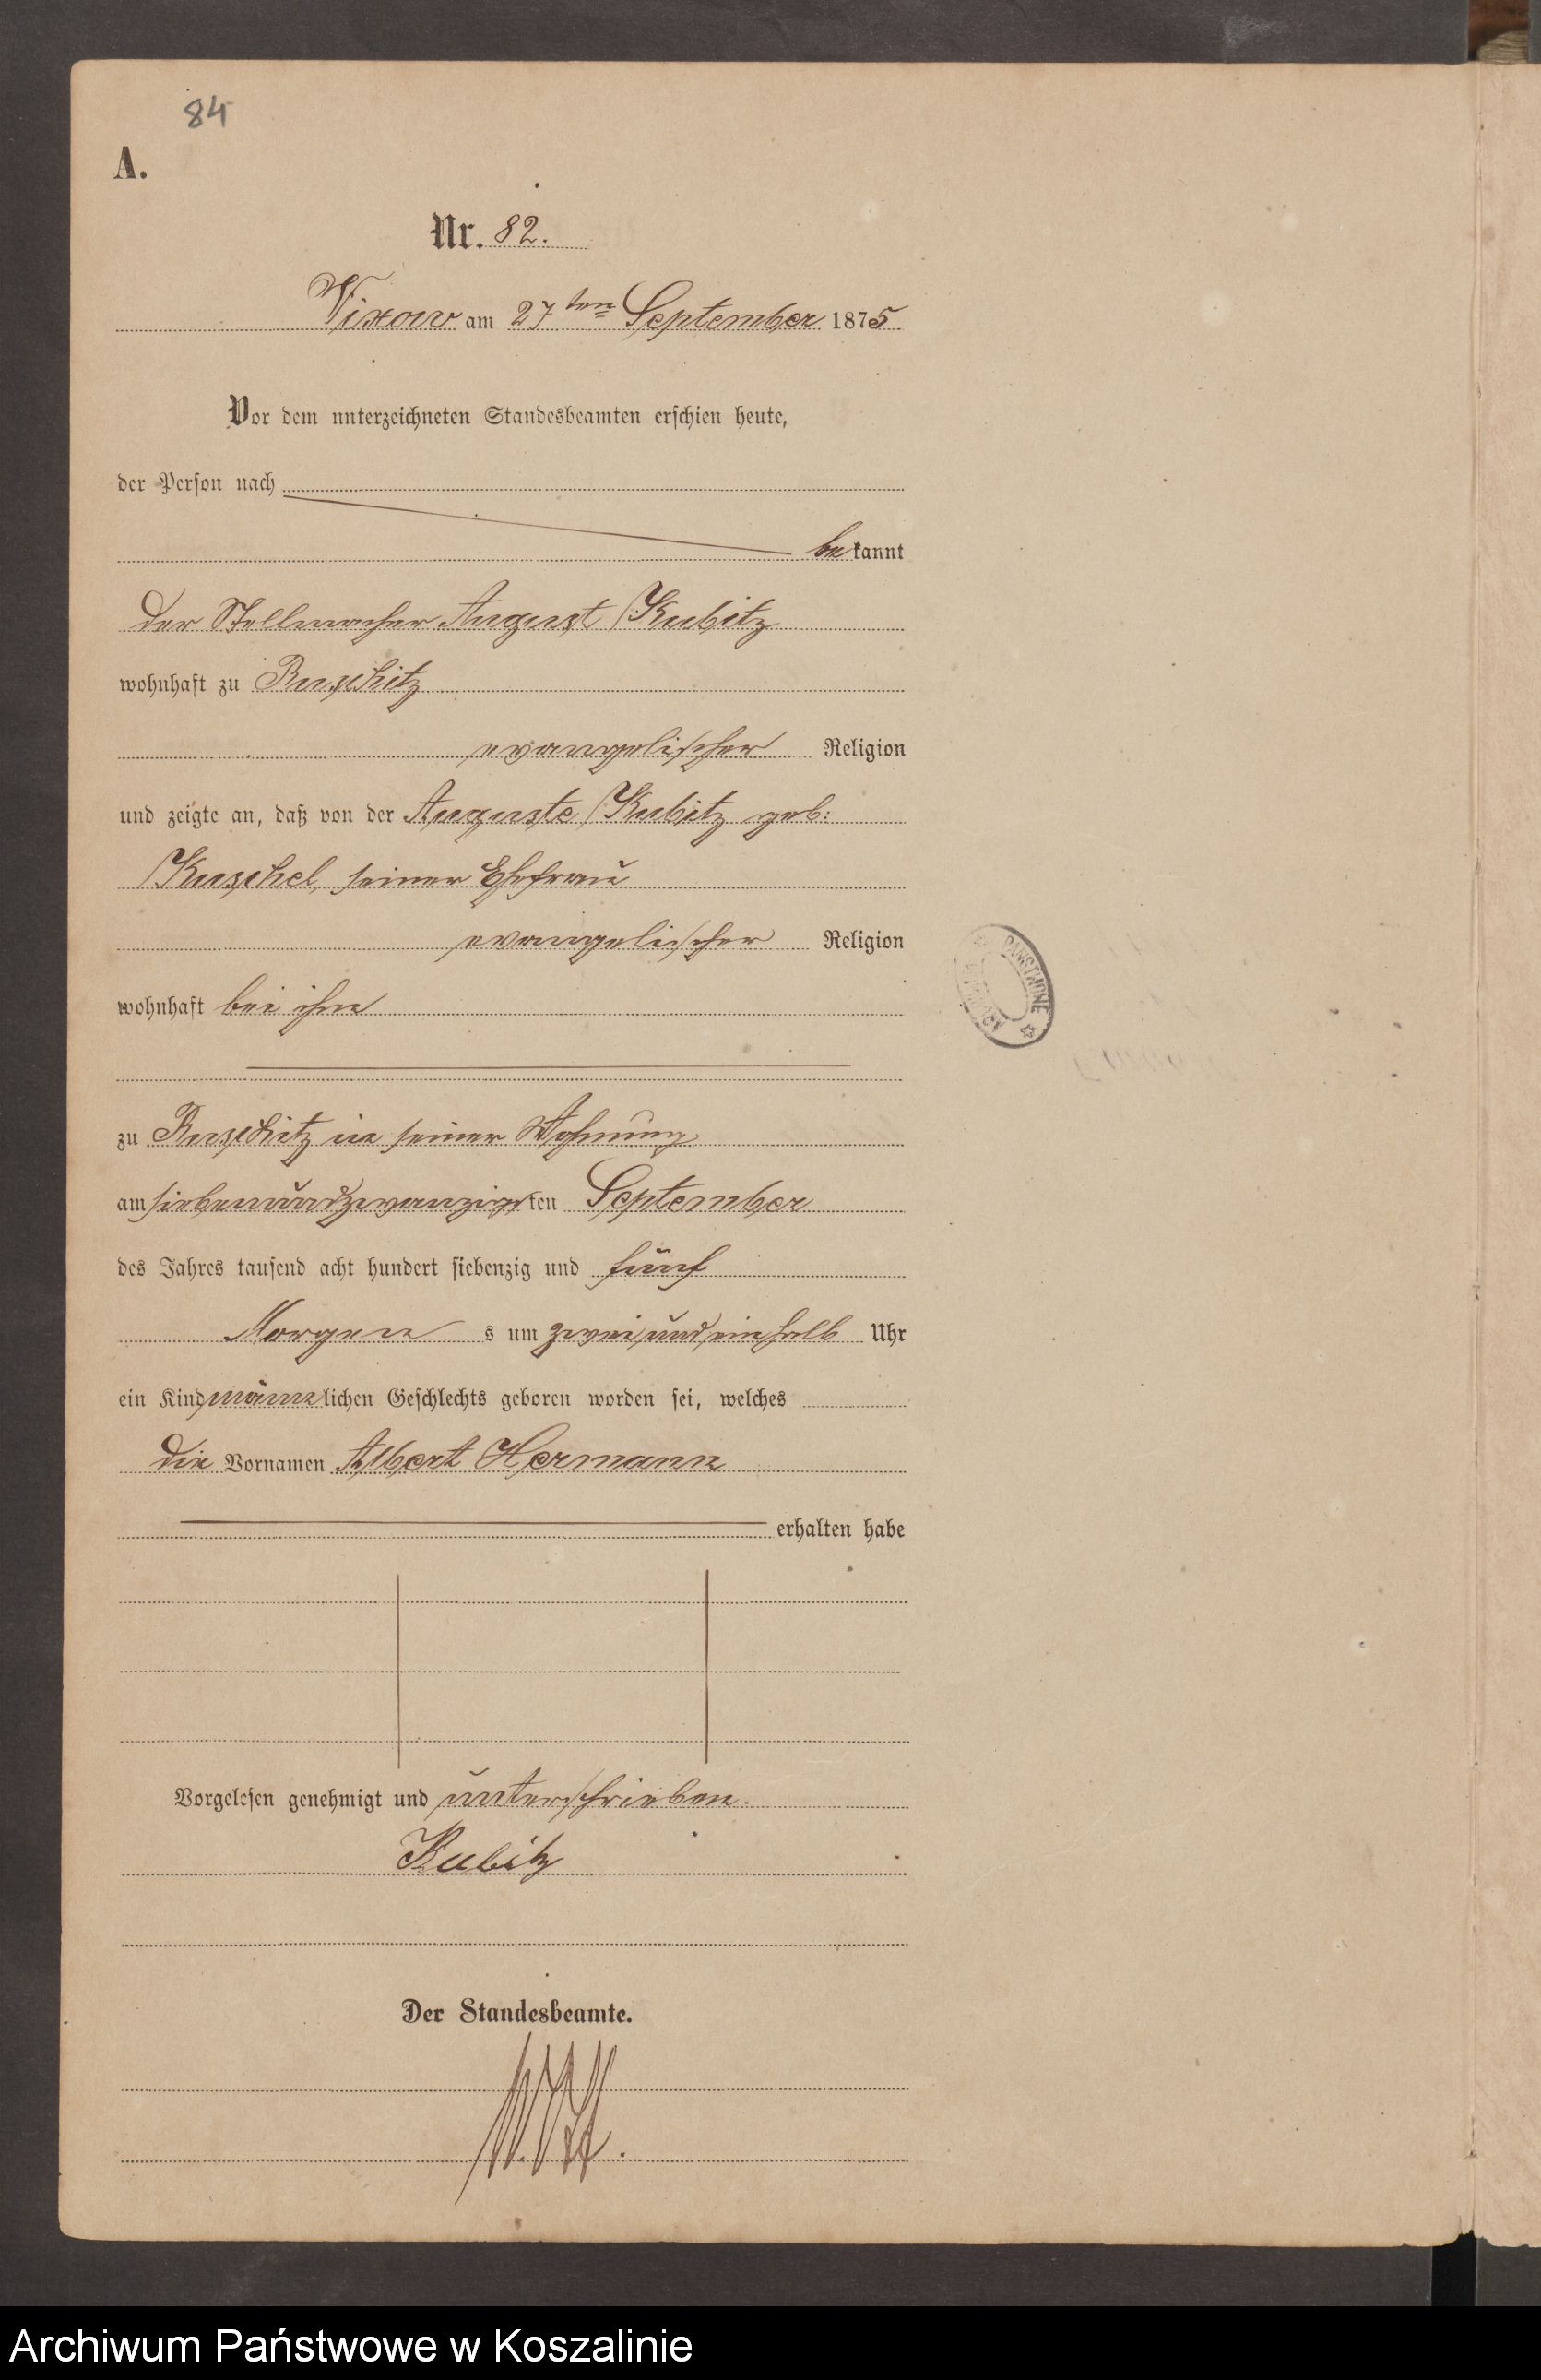 84
A.
Nr. 82.
Vixow am 27ten September 1875
Vor dem unterzeichneten Standesbeamten erschien heute,
der Person nach
bekannt
der Stellmacher August Kubitz
wohnhaft zu Ruschitz
evangelischer Religion
und zeigte an, daß von der Auguste Kubitz geb:
Kuschel, seiner Ehefrau
evangelischer Religion
wohnhaft bei ihm
zu Ruschitz in seiner Wohnung
am siebenundzwanzigsten September
des Jahres tausend acht hundert siebenzig und fünf
Morgens um zwei und ein halb Uhr
ein Kind männlichen Geschlechts geboren worden sei, welches
die Vornamen Albert Hermann
erhalten habe
Vorgelesen genehmigt und unterschrieben.
Kubitz
Der Standesbeamte.
PAŃSTWOWE
Archiwum Państwowe w Koszalinie